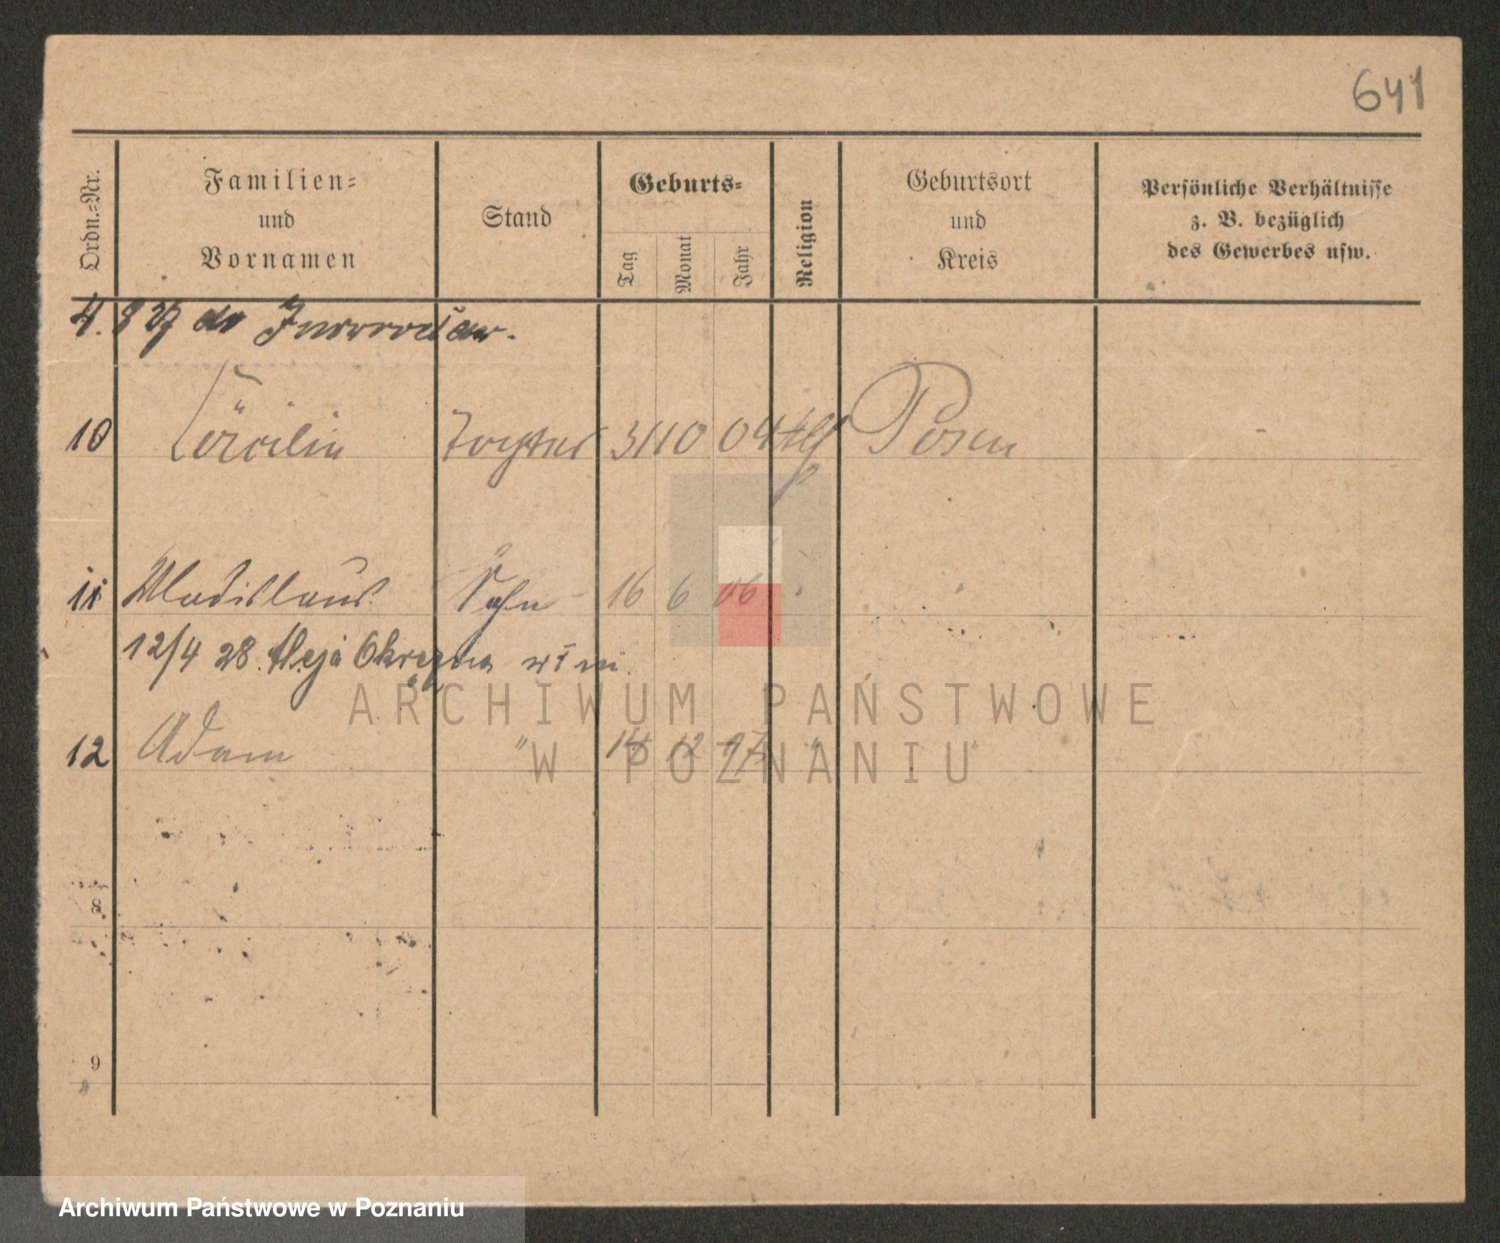 641
Ordn.-Nr.
Familien-
und
Vornamen
Stand
Geburts-
Tag
Monat
Jahr
Religion
Geburtsort
und
Kreis
Persönliche Verhältnisse
z. B. bezüglich
des Gewerbes usw.
4. 8 27 do
10 Cäcilie Tochter 31 10 04 Posen
11 Wladislaus Sohn 16 6 06
12/4 28. Okrężna
12 Adam " 14 12 "
8
9
ARCHIWUM PAŃSTWOWE
W POZNANIU
Archiwum Państwowe w Poznaniu